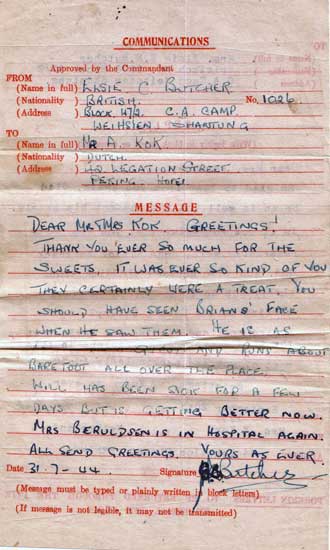 COMMUNICATIONS
Approved by the Commandant
FROM
(Name in full) ELSIE C BUTCHER
(Nationality) BRITISH. No. 1026
(Address) BLOCK 47/2. C.A. CAMP.
WEIHSIEN. SHANTUNG
TO
(Name in full) MR A. KOK.
(Nationality) DUTCH.
(Address) LEGATION STREET.
PEKING. HOPEI.
MESSAGE
DEAR MR & MRS KOK. GREETINGS!
THANK YOU EVER SO MUCH FOR THE
SWEETS, IT WAS EVER SO KIND OF YOU
THEY CERTAINLY WERE A TREAT. YOU
SHOULD HAVE SEEN BRIANS' FACE
WHEN HE SAW THEM. HE IS AS
AND RUNS ABOUT
BAREFOOT ALL OVER THE PLACE.
WILL HAS BEEN SICK FOR A FEW
DAYS BUT IS GETTING BETTER NOW.
MRS BERULDSEN IS IN HOSPITAL AGAIN.
ALL SEND GREETINGS. YOURS AS EVER.
Date 31-7-44. Signature Butcher
(Message must be typed or plainly written in block letters)
(If message is not legible, it may not be transmitted)